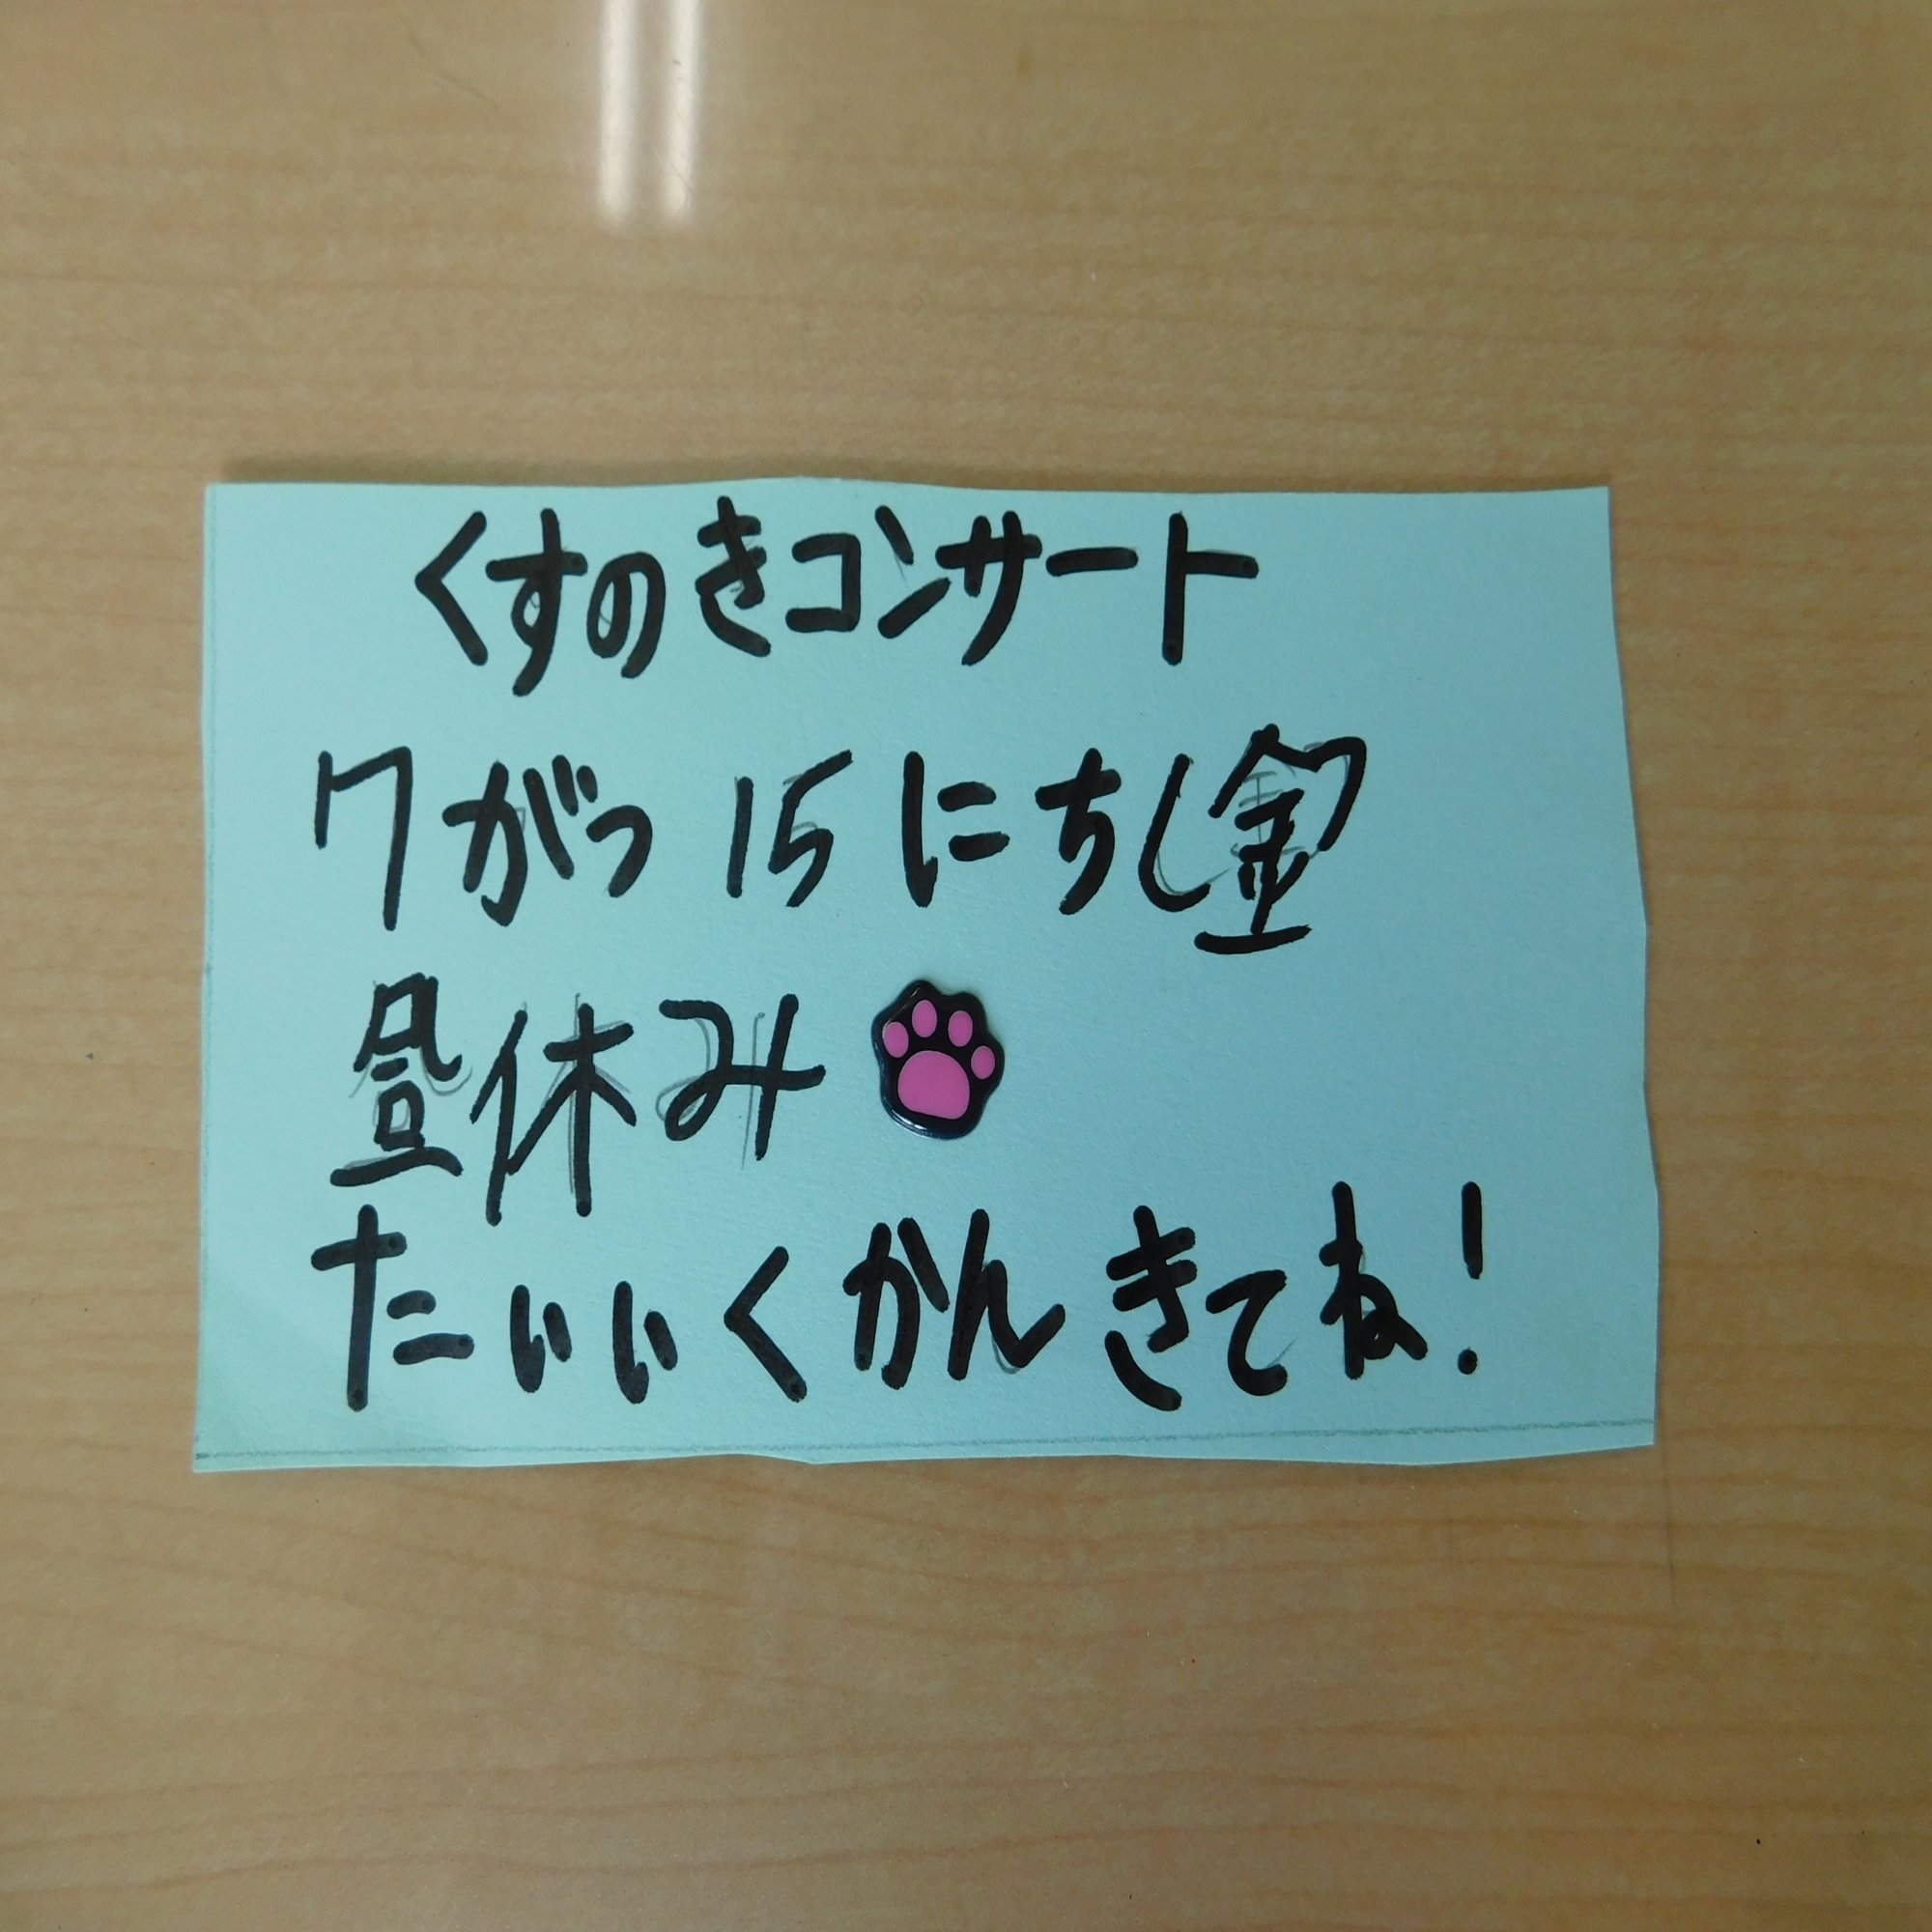 くすのきコンサート
7がつ 15にち(金)
昼休み
たいいくかん きてね!